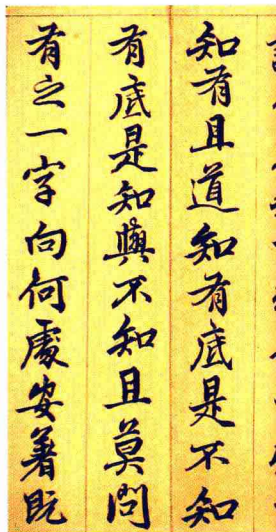 知有且道知有底是不知
有底是知與不知且莫問
有之一字向何處安著既